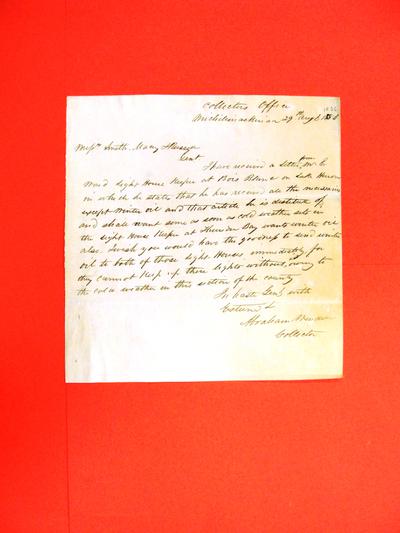 Collectors Office
Michilimackinac 29th Augt 1838
Messrs Smith, Macy
Gent
I have received a letter from Mr
Ward Light House Keeper at Bois Blanc on Lake Huron
in which he states that he has received all the necessaries
except Winter oil and that article he is destitute of
and shall want some as soon as cold weather sets in
the Light House Keeper at Thunder Bay wants winter oil
also I wish you would have the goodness to send winter
oil to both of those Light Houses immediately for
they cannot keep up those lights without, owing to
the cold weather in this section of the country
In haste Gent with
Esteem &
Abraham Wendell
Collector